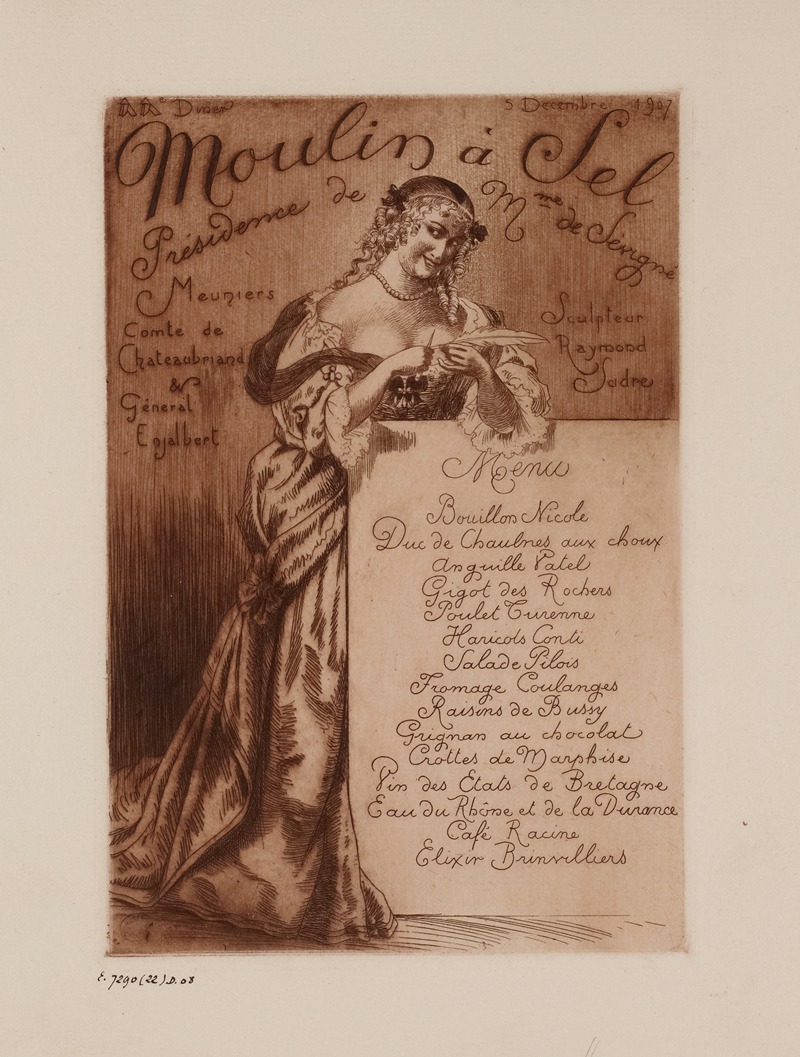 Diner
5 Decembre 1907
Moulin à Sel
Présidence de Mme de Sévigné
Meuniers
Comte de
Chateaubriand
&
Géneral
Enjalbert
Sculpteur
Raymond
Sudre
Menu
Bouillon Nicole
Duc de Chaulnes aux choux
Anguille Vatel
Gigot des Rochers
Poulet Turenne
Haricots Conti
Salade Pilois
Fromage Coulanges
Raisins de Bussy
Grignan au chocolat
Crottes de Marphise
Vin des Etats de Bretagne
Eau du Rhône et de la Durance
Café Racine
Elixir Brinvilliers
E. 7290 (22) D. 08